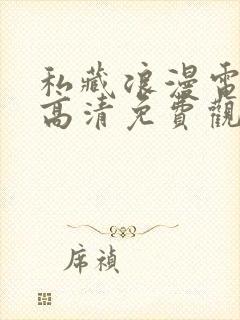 私藏浪漫電
高清免費觀
席禎